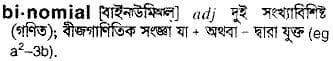 bi·nomial [বাইনাউমিঅল্] adj দুই সংখ্যাবিশিষ্ট
(গণিত); বীজগাণিতিক সংজ্ঞা যা + অথবা – দ্বারা যুক্ত (eg
a²–3b).